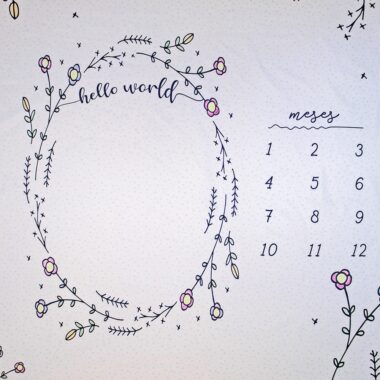 hello world
meses
1 2 3
4 5 6
7 8 9
10 11 12